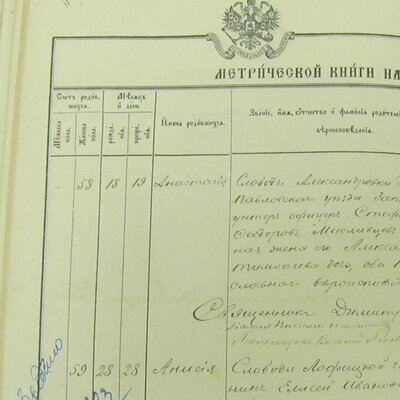 МЕТРИ́ЧЕСКОЙ КНИ́ГИ НА
Счетъ родив-
шихся.
Мѣсяцъ
и день
Имена родившихся.
Званіе, имя, отчество и фамилія родителе
вѣроисповѣданія.
Мужеска
пола.
Женска
пола.
рожде-
нія.
креще-
нія.
- 58 18 19 Анастасія
Слободы Александровки
Павловскаго уѣзда Запа
унтеръ-офицеръ Стеф
Ѳеодоровъ
ная жена его Алекса
Тимоѳеева дочь, оба П
славнаго вѣроисповѣ
Священникъ Димитр
59 28 28 Анисія
Слободы
нинъ Елисей Иванов